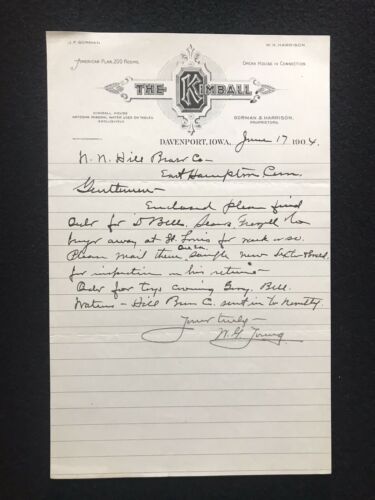 J. F. GORMAN
W. H. HARRISON
AMERICAN PLAN. 200 ROOMS.
OPERA HOUSE IN CONNECTION
THE KIMBALL
KIMBALL HOUSE
ARTESIAN MINERAL WATER USED ON TABLES
EXCLUSIVELY
GORMAN & HARRISON,
PROPRIETORS.
DAVENPORT, IOWA, June 17 1904.
N. N. Hill Brass Co -
East Hampton Conn.
Gentlemen -
Enclosed please find
Order for Bells.
buyer away at St. Louis for week or so.
Please mail them sample new
for inspection on his return -
Order for toys covering Bell.
Hill Brass C. sent in to
Yours truly -
W. G. Young